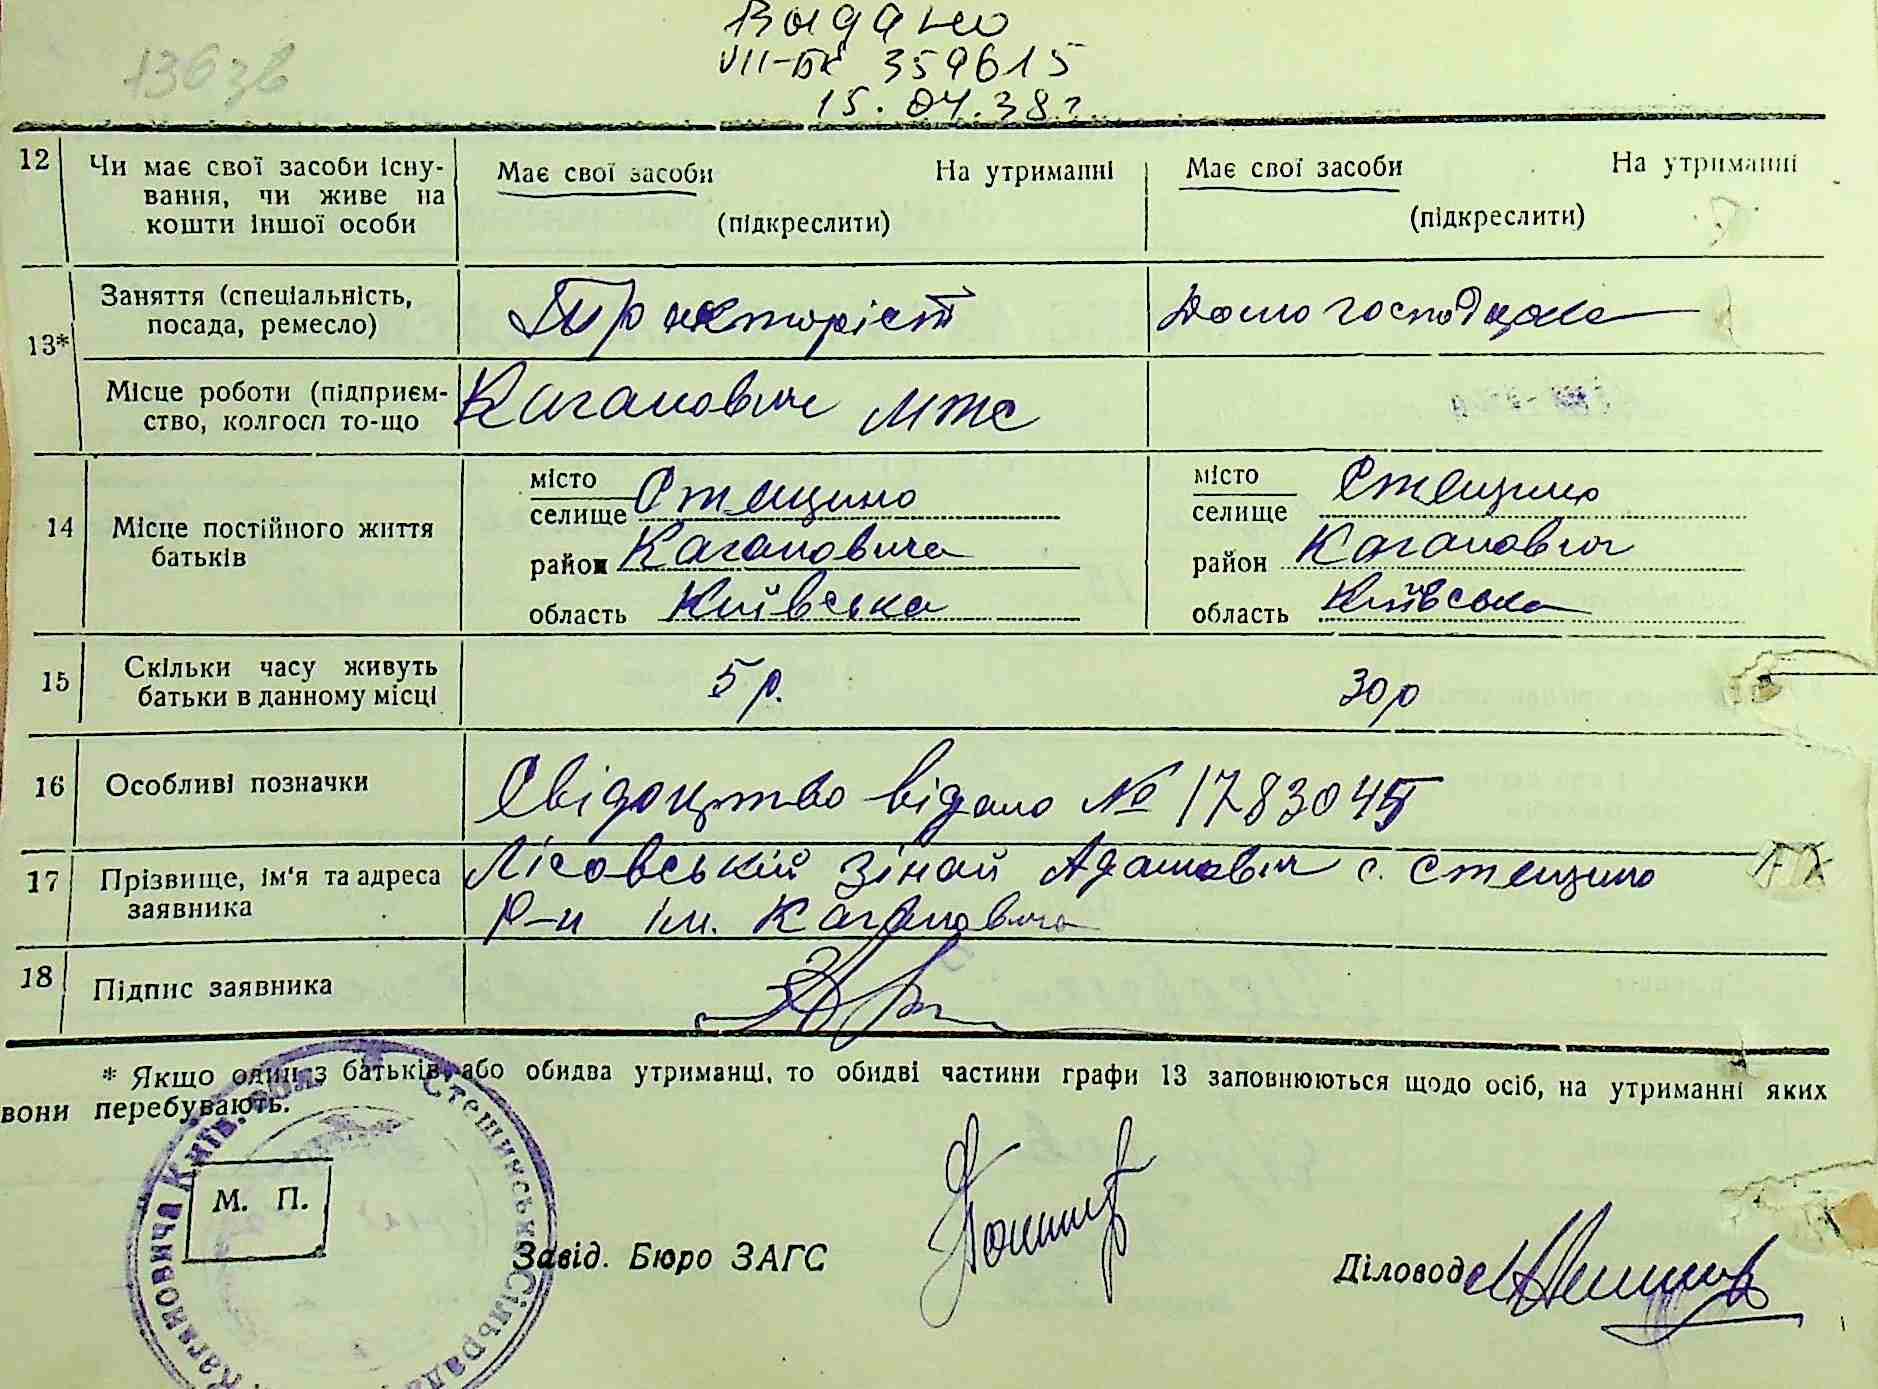 Выдано
VII-БК 359615
15.04.38г
12 Чи має свої засоби існу-
вання, чи живе на
кошти іншої особи
Має свої засоби На утриманні
(підкреслити)
Має свої засоби На утриманні
(підкреслити)
13*
Заняття (спеціальність,
посада, ремесло)
Тракторіст
Домогосподарка
Місце роботи (підприєм-
ство, колгосп то-що
Каганович МТС
14 Місце постійного життя
батьків
місто
селище Стещино
район Кагановича
область Київська
місто
селище Стещино
район Каганович
область Київська
15 Скільки часу живуть
батьки в данному місці
5 р.
30 р
16 Особливі позначки
Свідоцтво відано № 1783045
17 Прізвище, ім'я та адреса
заявника
Лісовський Зінай Адамович с. Стещино
Р-н ім. Кагановича
18 Підпис заявника
* Якщо один з батьків, або обидва утриманці, то обидві частини графи 13 заповнюються щодо осіб, на утриманні яких
вони перебувають.
М. П.
Кагановича Київ. обл. Стещинська Сільрада
Завід. Бюро ЗАГС
Діловод